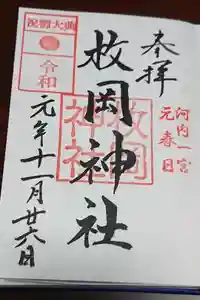 奉拝
河内一宮
元春日
枚岡神社
枚岡神社
祝賀大典
令和
元年十一月廿六日